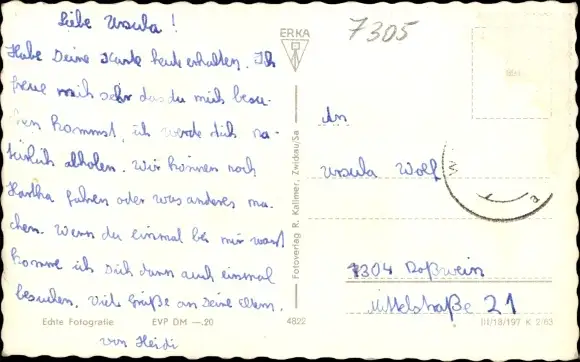 Liebe Ursula!
Habe Deine Karte heute erhalten. Ich
freue mich sehr das du mich besu-
chen kommst, ich werde dich na-
türlich abholen. Wir können noch
Hartha fahren oder was anderes ma-
chen. Wenn du einmal bei mir warst
komme ich Dich dann auch einmal
besuchen. Viele Grüße an Deine Eltern.
von Heidi
Echte Fotografie EVP DM —.20 4822
ERKA
Fotoverlag R. Kallmer, Zwickau/Sa
7305
An
Ursula Wolf
7304 Roßwein
Mittelstraße 21
III/18/197 K 2/63